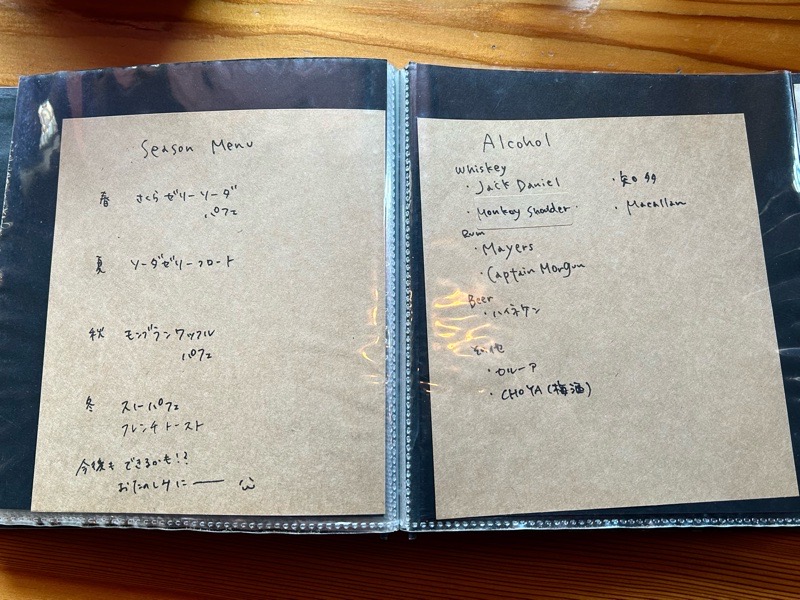 Season Menu
春 さくらゼリーソーダ
パフェ
夏 ソーダゼリーフロート
秋 モンブランワッフル
パフェ
冬 スノーパフェ
フレンチトースト
今後も できるかも!?
おたのしみにー
Alcohol
Whiskey
・Jack Daniel ・知多
・Monkey Shoulder ・Macallan
Rum
・Mayers
・Captain Morgan
Beer
・ハイネケン
その他
・カルーア
・CHOYA(梅酒)